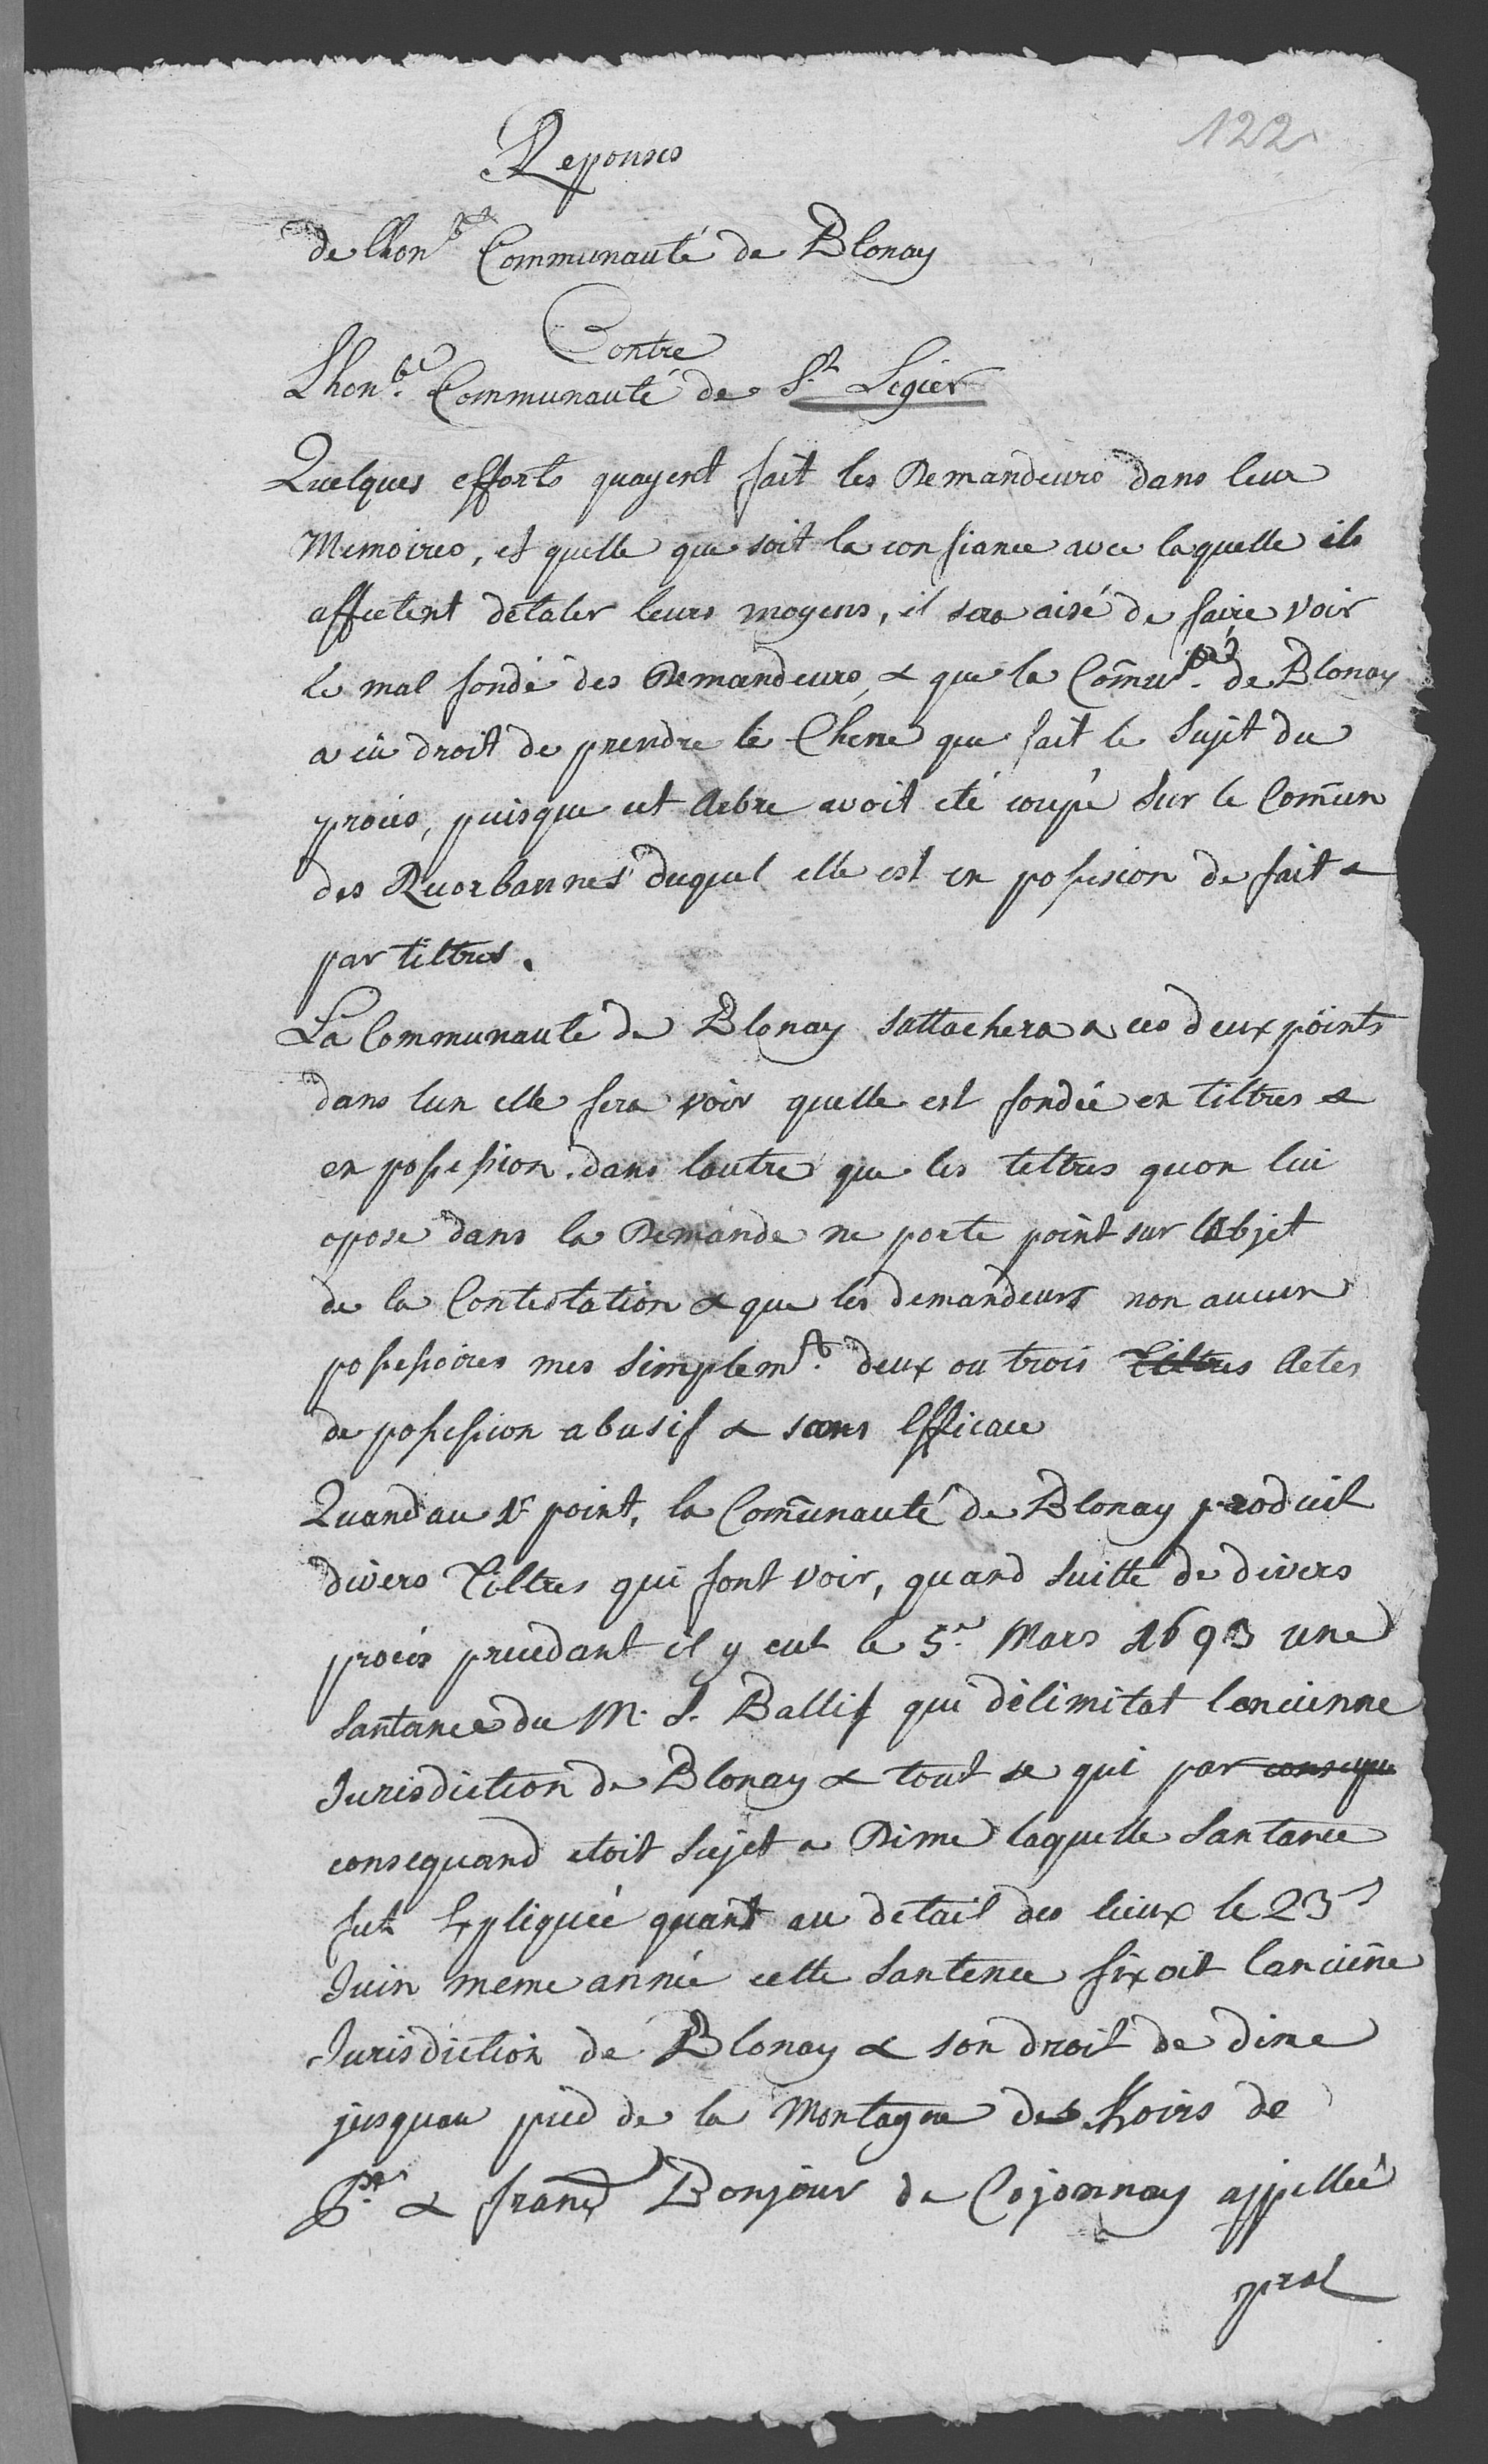 122
Reponses
de lhon.ble Communauté de Blonay
Contre
Lhon.ble Communauté de S.t Legier
Quelques efforts quayent fait les Demandeurs dans leur
Memoires, et quelle que soit la confiance avec laquelle ils
affectent detaler leurs moyens, il sera aisé de faire voir
le mal fondé des Demandeurs, & que la Com̃u.té de Blonay
a eü droit de prendre le Chene que fait le Sujet du
procès, puisque cet Arbre avoit eté coupé Sur le Com̃un
des Quorbannes duquel elle est en possesion de fait &
par tiltres.
La Communauté de Blonay sattachera a ces deux points
dans lun elle fera voir quelle est fondée en tiltres &
en possession. dans loutre que les tiltres quon lui
opose dans la Demande ne porte point sur lobjet
de la Contestation & que les demandeurs non aucun
possessoires mes simplem.t deux ou trois Tiltres Actes
de possession abusif & sans Efficace
Quand au 1.r point, la Com̃unauté de Blonay produit
divers Tiltres qui font voir, quand suitte de divers
procès precedant il y eut le 5.e Mars 1693 une
Santance du M. S. Ballif qui délimitat lencienne
Jurisdiction de Blonay & tout se qui par consequ
consequand etoit sujet a Dime laquelle Santance
fut Expliquée quant au detail des lieux le 23
Juin meme année cette Santence fixoit lanciẽne
Jurisdiction de Blonay & son droit de dime
jusquau pied de la Montagne des hoirs de
P.re & franç Bonjour de Cojonnay appellée
pral